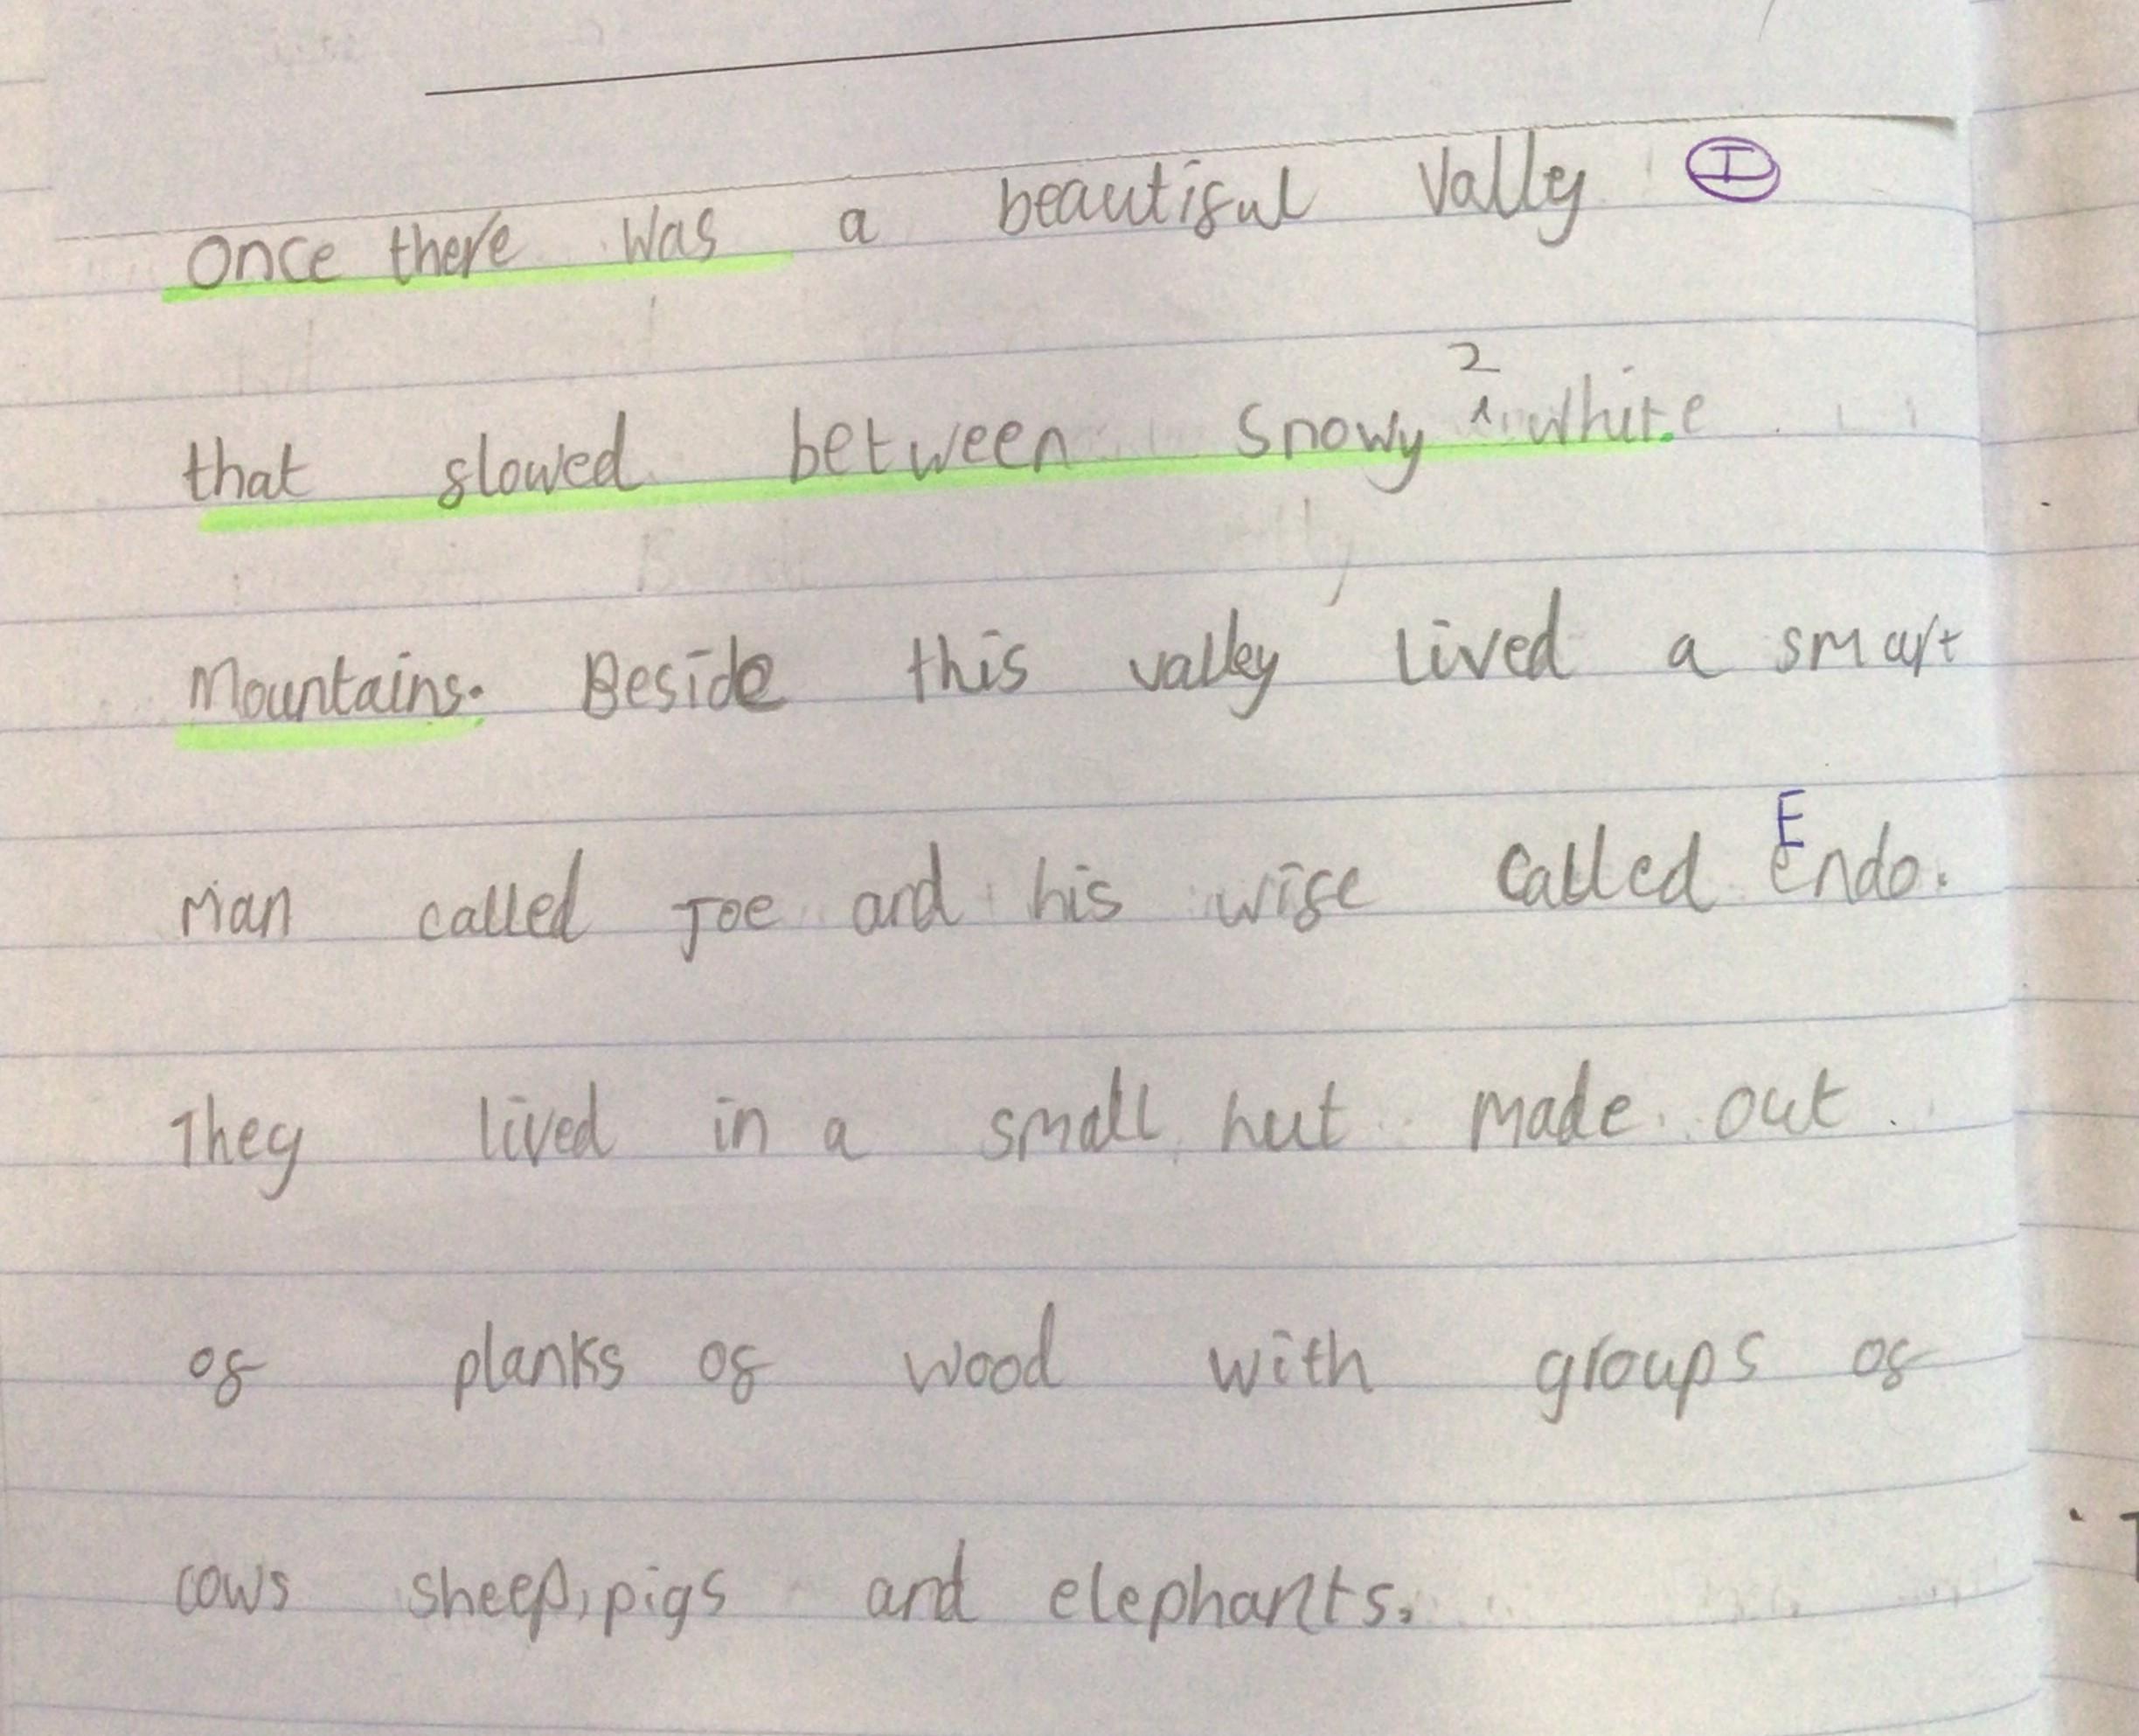 once there was a beautiful Vally I
that flowed between snowy 2 white
Mountains. Beside this valley lived a smart
man called Joe and his wife called Endo.
They lived in a small hut made out
of planks of wood with groups of
cows sheep, pigs and elephants.